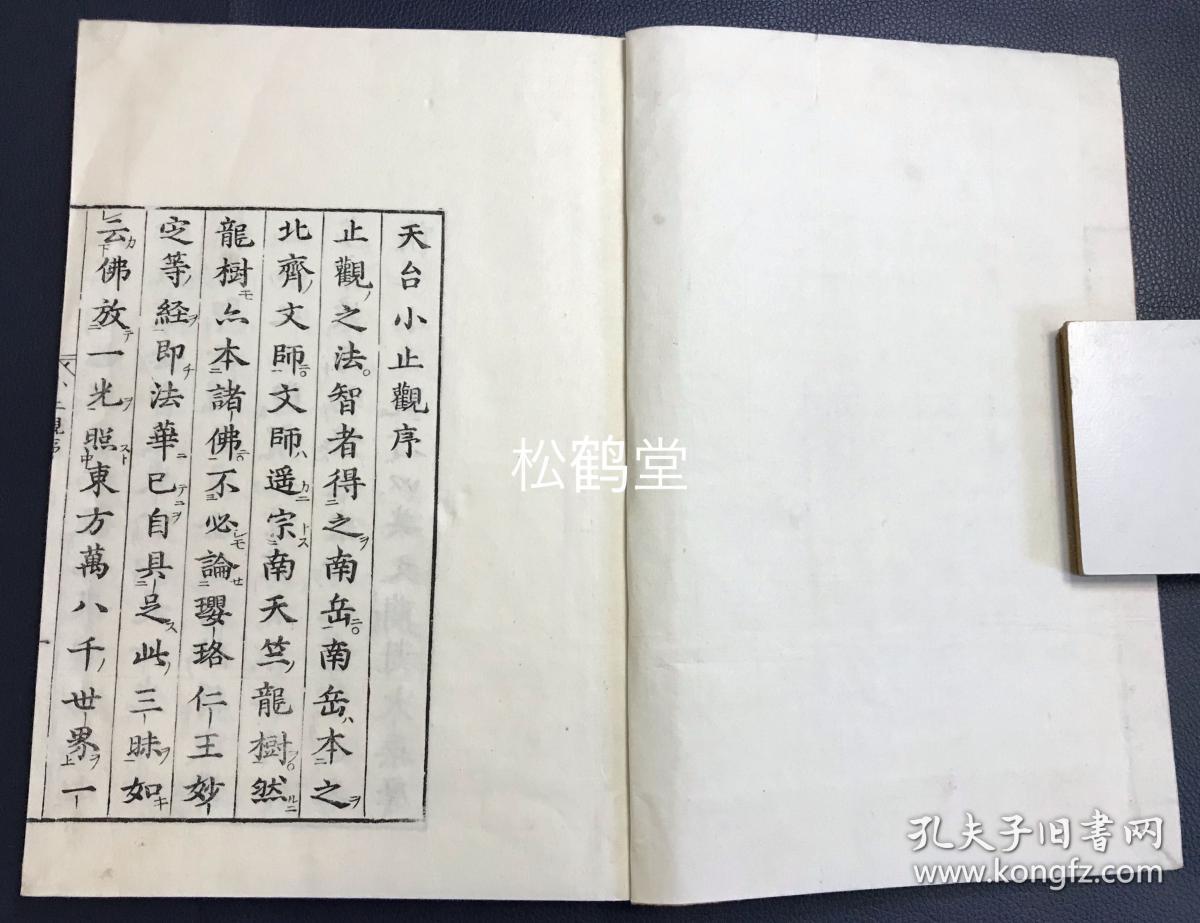 天台小止觀序
止觀之法智者得之南岳南岳本之
北齊文師文師遥宗南天竺龍樹然
龍樹亦本諸佛不必論瓔珞仁王妙
定等経即法華已自具足此三昧如
云佛放一光照東方萬八千世界一
松鹤堂
孔夫子旧书网
www.kongfz.com